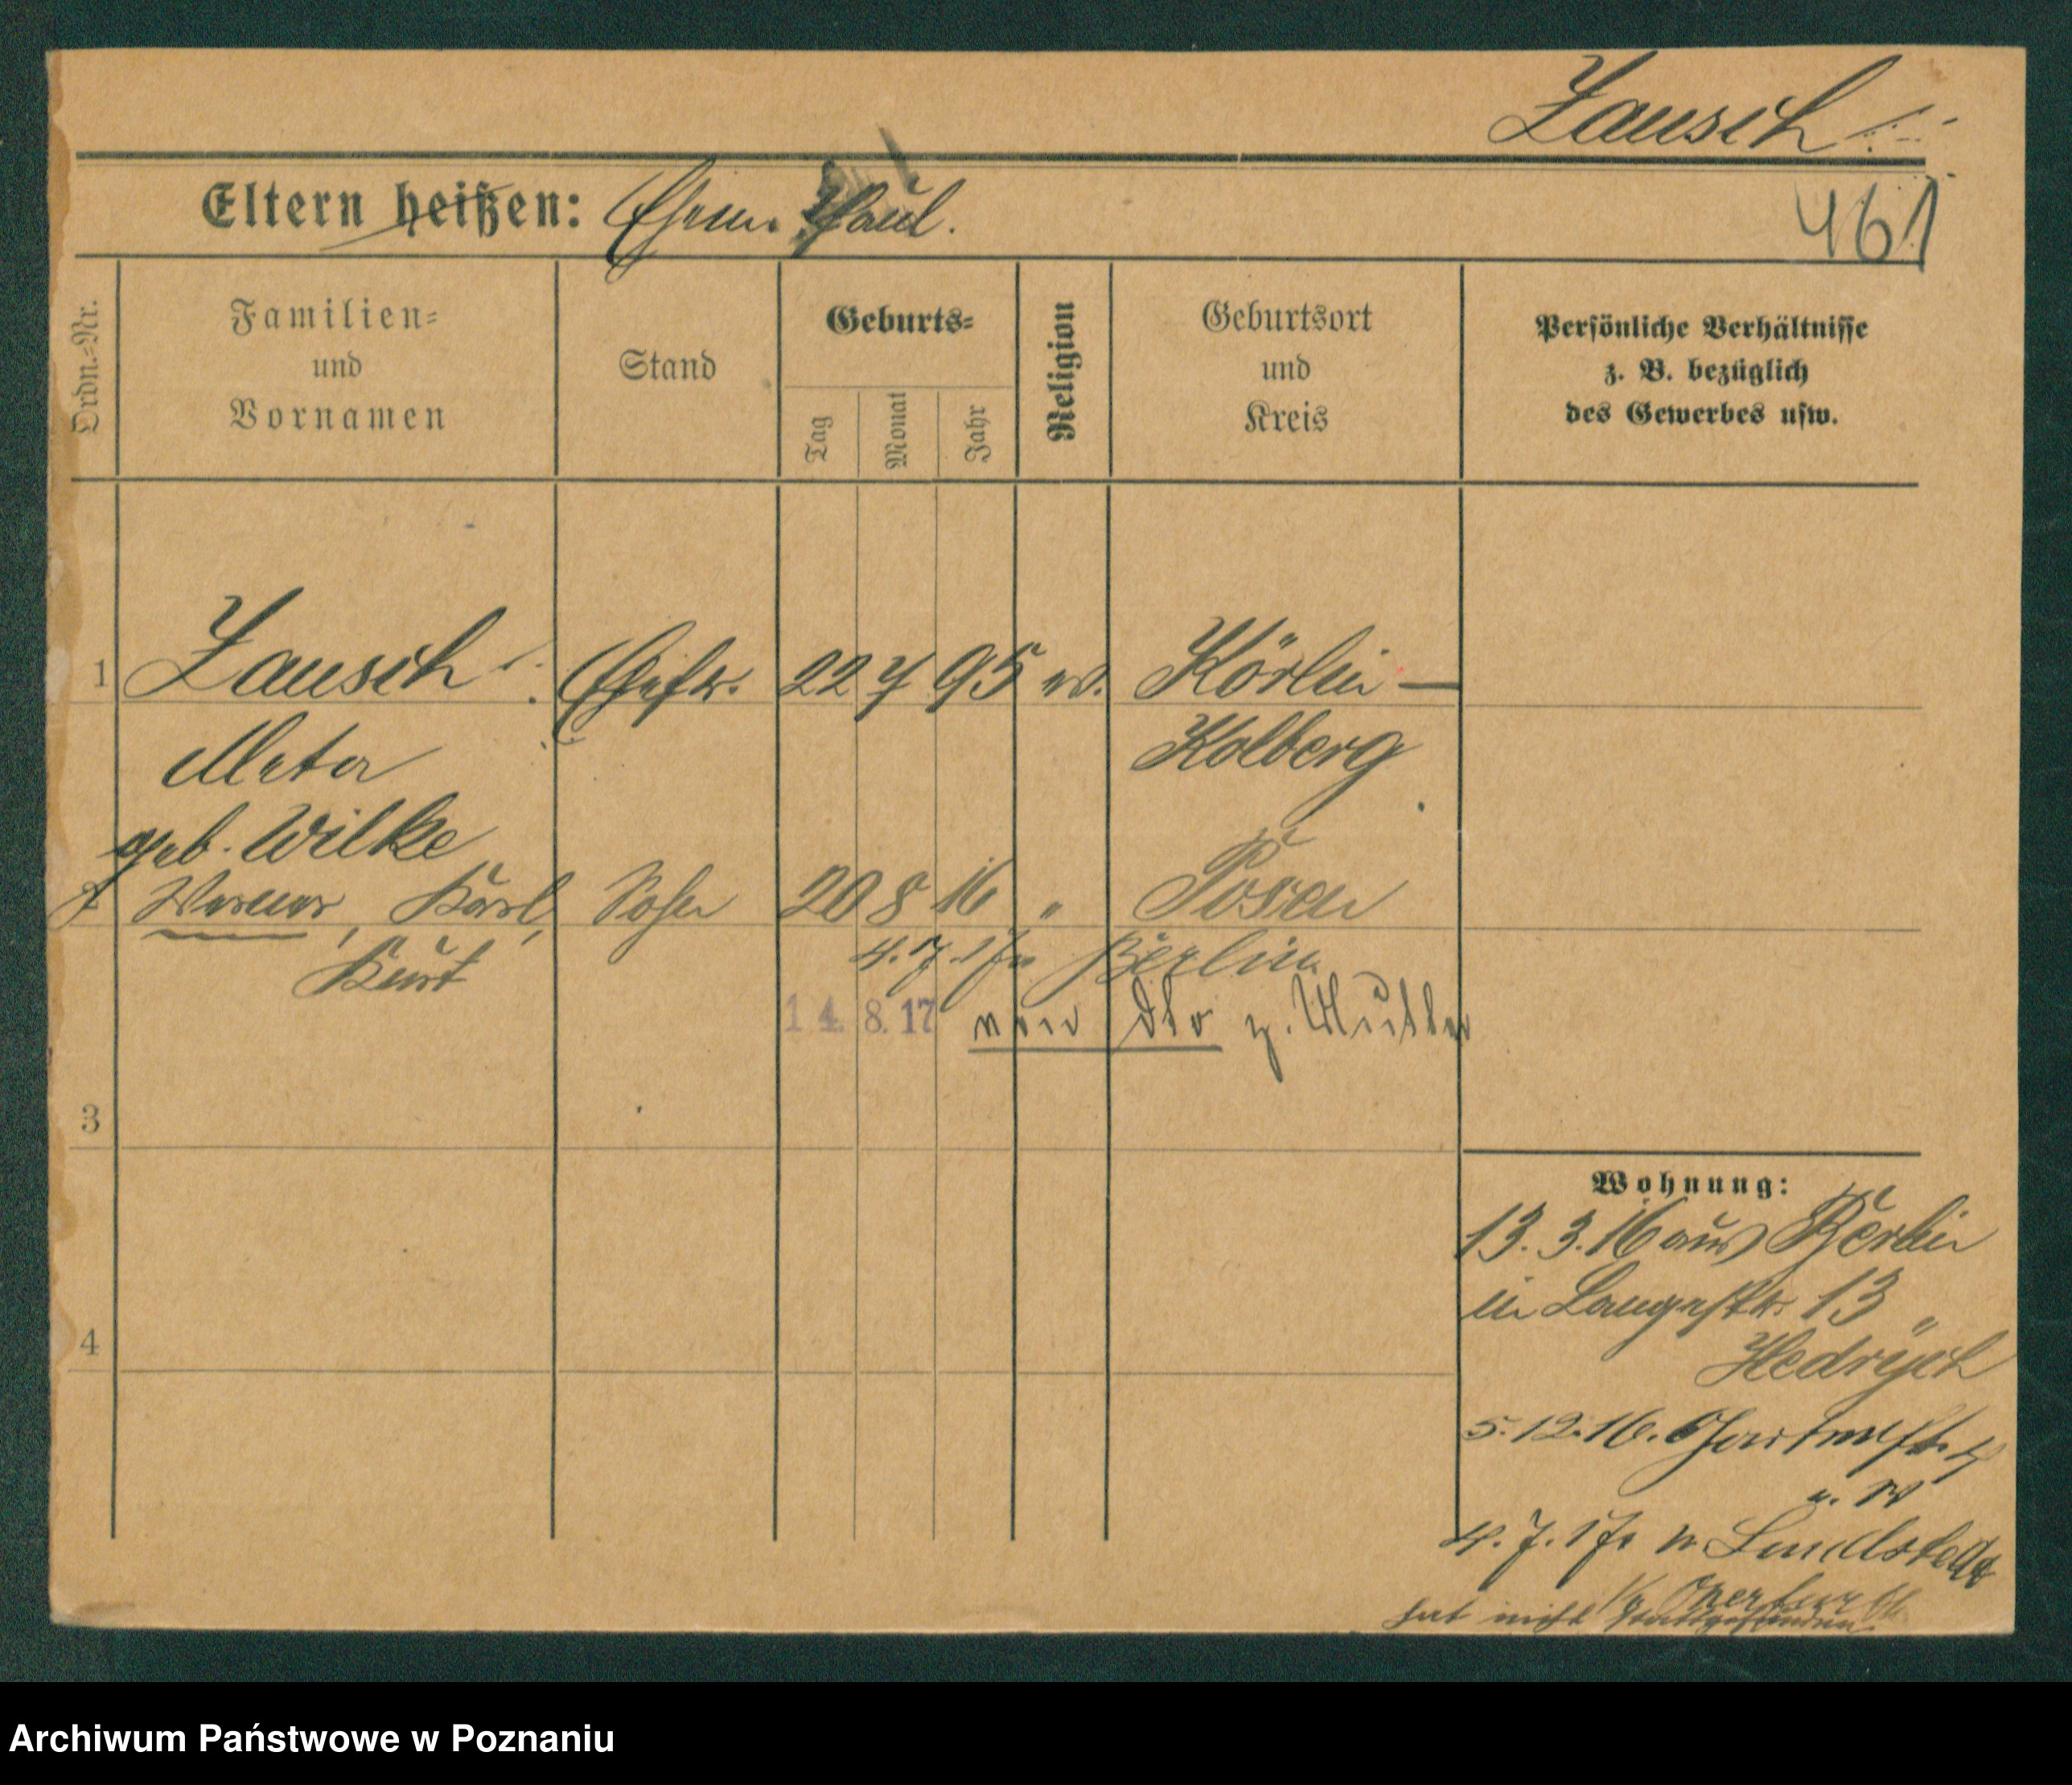 Zausch
Eltern heißen: Ehem. Paul.
461
Ordn.=Nr.
Familien=
und
Vornamen
Stand
Geburts=
Tag
Monat
Jahr
Religion
Geburtsort
und
Kreis
Persönliche Verhältnisse
z. B. bezüglich
des Gewerbes usw.
1 Zausch Ehefr. 22 7 95 ev. Körlin –
Meta Kolberg
geb. Wilke
2 Werner, Karl, Sohn 20 8 16 " Posen
Kurt
4.7.17 n Berlin
14. 8. 17 von dto z. Mutter
3
4
Wohnung:
13. 3. 16 aus Berlin
in Langestr. 13
Hedrych
5. 12. 16.
4. 7. 17 n
hat nicht stattgefunden
Archiwum Państwowe w Poznaniu